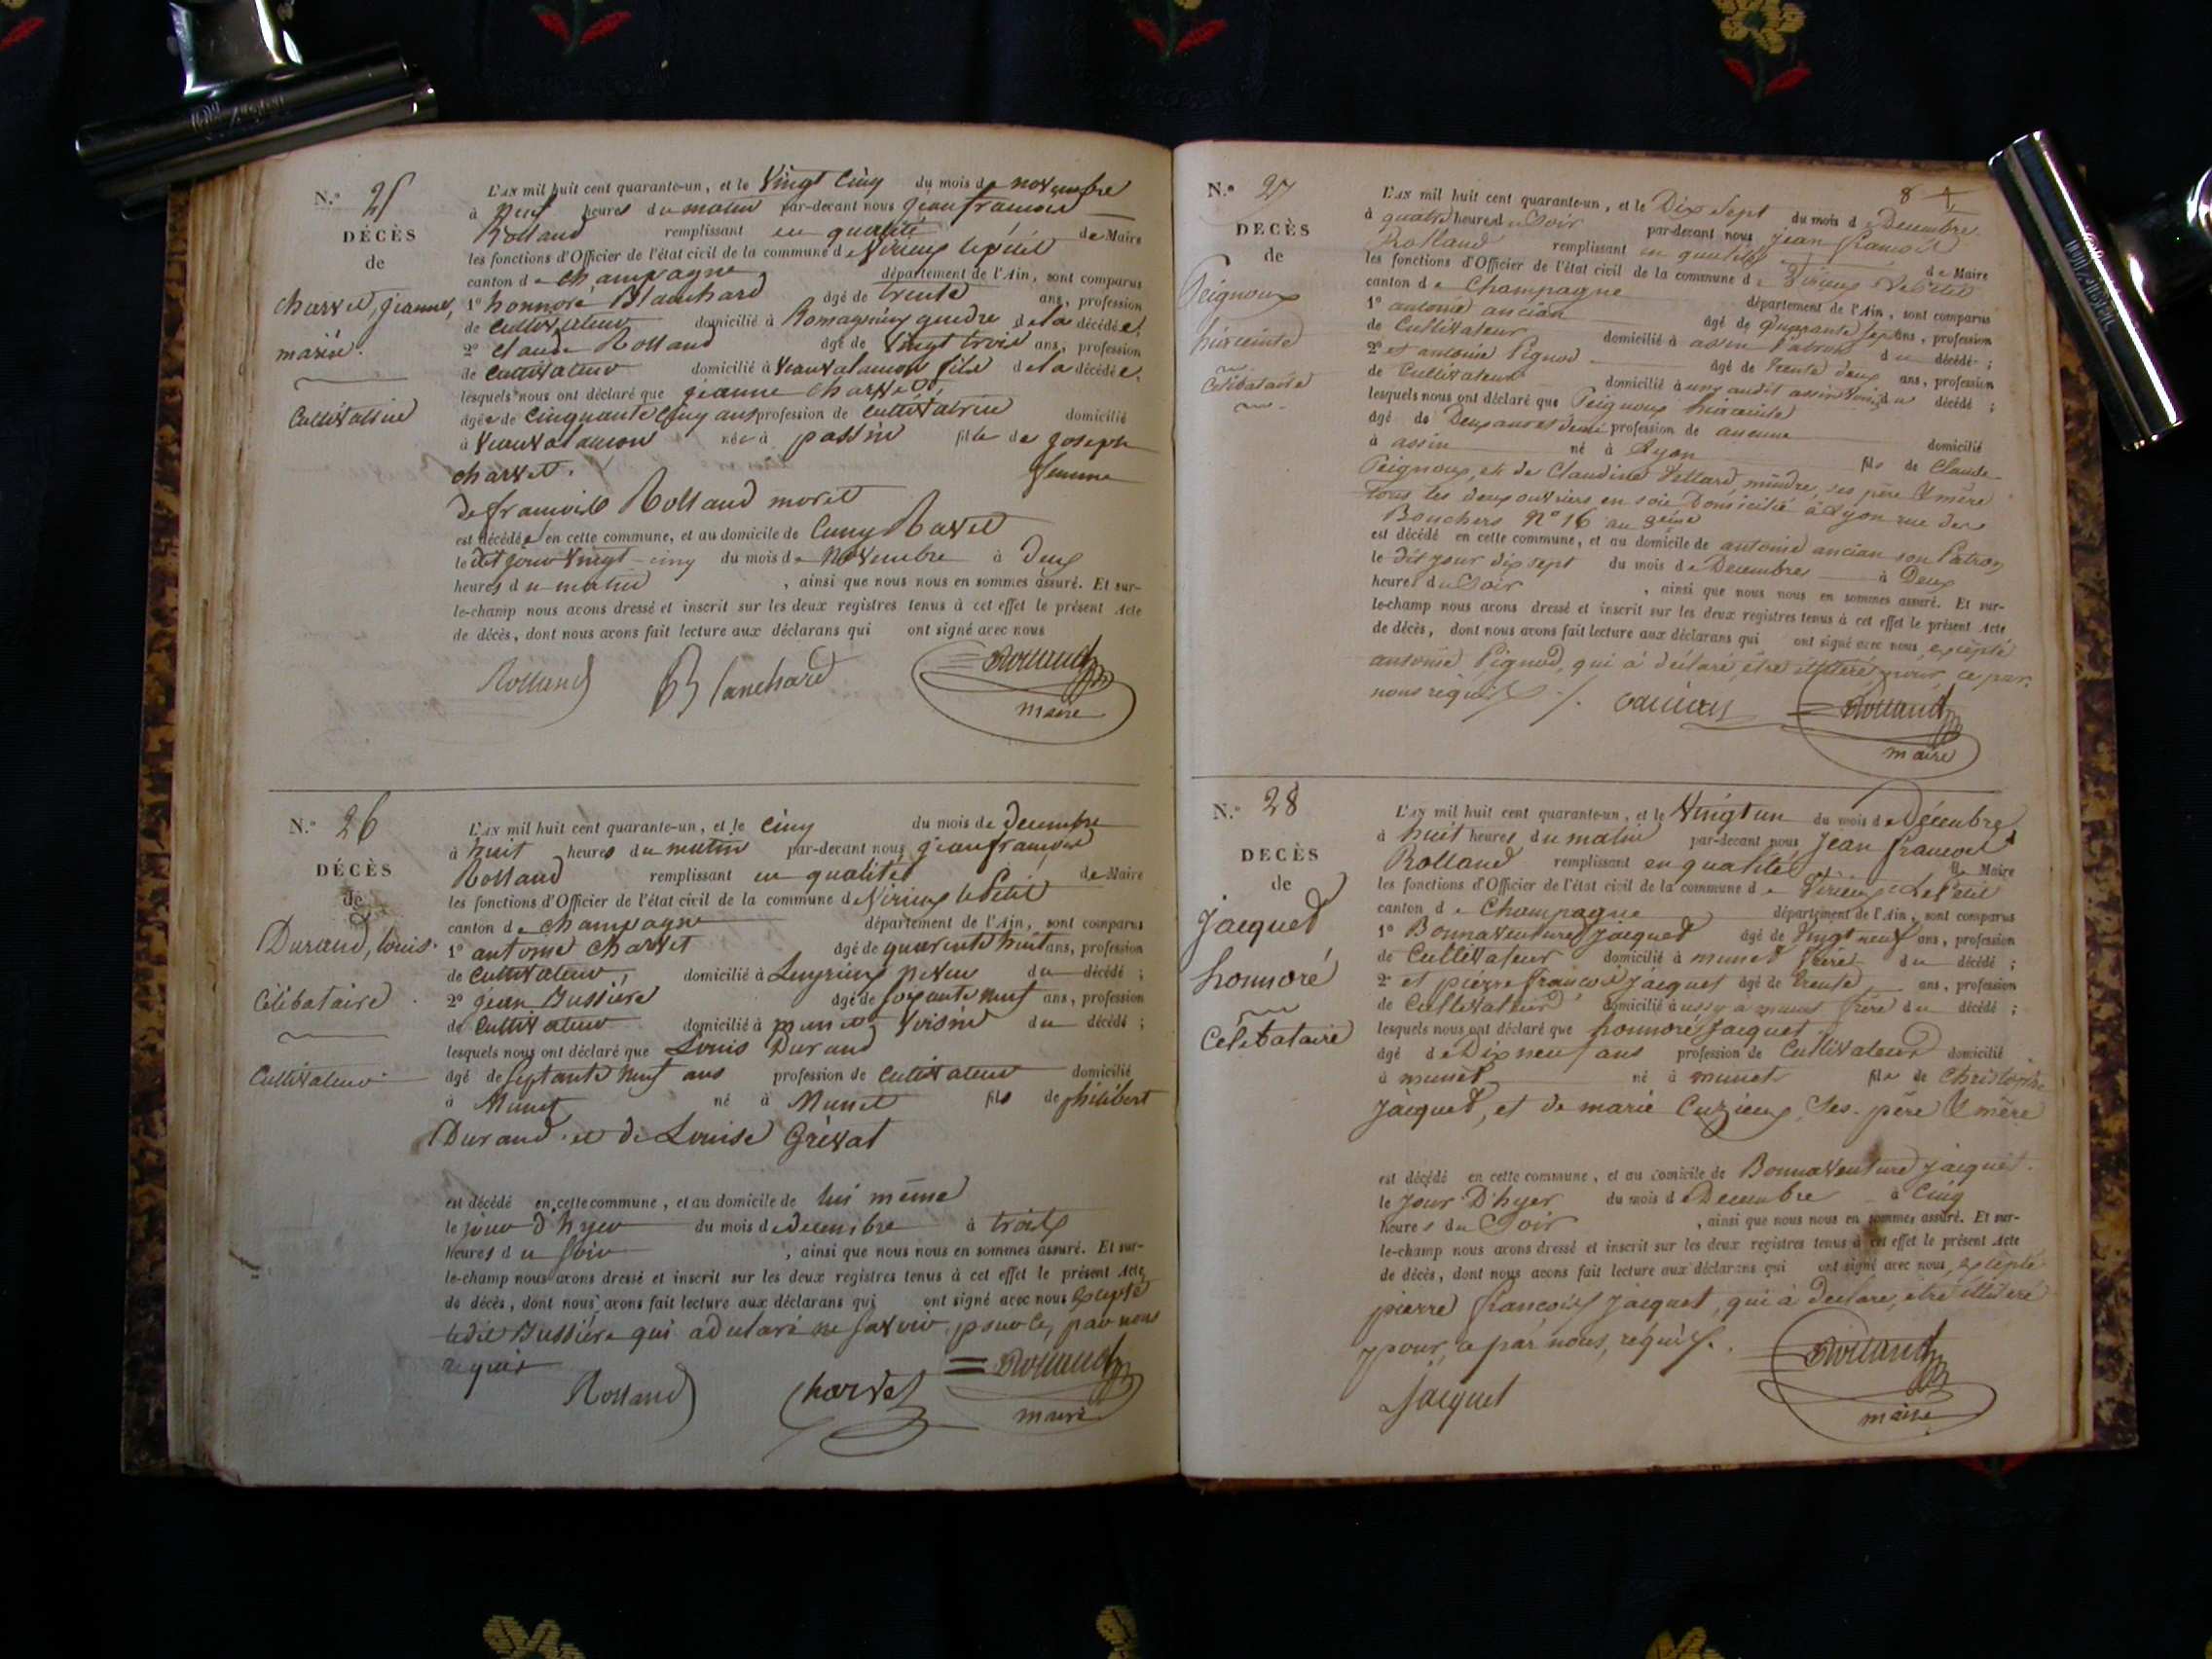 N.° 25
DÉCÈS
de
Charvet, jeanne,
mariée.
Cultivatrice
L'AN mil huit cent quarante-un, et le Vingt cinq du mois de novembre
à neuf heures du matin par-devant nous jean françois
Rolland remplissant en qualité de Maire
les fonctions d'Officier de l'état civil de la commune de Virieu le petit
canton de Champagne département de l'Ain, sont comparus
1° honnore Blanchard âgé de trente ans, profession
de Cultivateur domicilié à Romagnieu gendre de la décédée,
2° Claude Rolland âgé de Vingt trois ans, profession
de Cultivateur domicilié à fils de la décédée,
lesquels nous ont déclaré que jeanne Charvet,
âgée de Cinquante Cinq ans profession de Cultivatrice domicilié
à née à passin fille de joseph
Charvet. femme
de françois Rolland moret
est décédée en cette commune, et au domicile de
le dit jour Vingt-cinq du mois de Novembre à Deux
heures du matin, ainsi que nous nous en sommes assuré. Et sur-
le-champ nous avons dressé et inscrit sur les deux registres tenus à cet effet le présent Acte
de décès, dont nous avons fait lecture aux déclarans qui ont signé avec nous
Rolland Blanchard Rolland
maire
N.° 26
DÉCÈS
de
Durand, louis.
Célibataire
Cultivateur
L'AN mil huit cent quarante-un, et le Cinq du mois de Decembre
à huit heures du matin par-devant nous jean françois
Rolland remplissant en qualité de Maire
les fonctions d'Officier de l'état civil de la commune de Virieux le Petit
canton de Champagne département de l'Ain, sont comparus
1° antoine Charvet âgé de quarente huit ans, profession
de Cultivateur, domicilié à Luyrieux neveu du décédé;
2° jean Bussiere âgé de soixante neuf ans, profession
de Cultivateur domicilié à munet Voisin du décédé;
lesquels nous ont déclaré que Louis Durand
âgé de septante neuf ans profession de Cultivateur domicilié
à Munet né à Munet fils de philibert
Durand et de Louise Grévat
est décédé en cette commune, et au domicile de lui même
le jour d'hyer du mois de decembre à trois
heures du soir, ainsi que nous nous en sommes assuré. Et sur-
le-champ nous avons dressé et inscrit sur les deux registres tenus à cet effet le présent Acte
de décès, dont nous avons fait lecture aux déclarans qui ont signé avec nous excepté
ledit Bussiére qui a déclaré ne savoir, pour ce, par nous
requis
Rolland Charvet Rolland
maire
8
N.° 27
DÉCÈS
de
Peignoux
hiacinte
Célibataire
L'AN mil huit cent quarante-un, et le Dix Sept du mois de Decembre
à quatre heures du Soir par-devant nous jean françois
Rolland remplissant en qualité de Maire
les fonctions d'Officier de l'état civil de la commune de Virieux Le Petit
canton de Champagne département de l'Ain, sont comparus
1° antoine ancian âgé de quarante sept ans, profession
de Cultivateur domicilié à assin Patron du décédé;
2° et antoine Pignod âgé de trente deux ans, profession
de Cultivateur domicilié à audit assin du décédé;
lesquels nous ont déclaré que Peignoux hiacinte
âgé de Deux ans et demi profession de aucune domicilié
à assin né à Lyon fils de Claude
Peignoux, et de Claudine Vellard, ses père & mère
tous les deux ouvriers en soie Domicilié à Lyon rue des
Bouchers N° 16 au 3eme
est décédé en cette commune, et au domicile de antoine ancian son Patron
le dit jour dix sept du mois de Decembre à Deux
heures du Soir, ainsi que nous nous en sommes assuré. Et sur-
le-champ nous avons dressé et inscrit sur les deux registres tenus à cet effet le présent Acte
de décès, dont nous avons fait lecture aux déclarans qui ont signé avec nous, excepté
antoine Pignod, qui à déclaré être illitéré pour, ce par
nous requis. ancian Rolland
maire
N.° 28
DÉCÈS
de
jacquet
honnoré
Celibataire
L'AN mil huit cent quarante-un, et le Vingt un du mois de Décembre
à huit heures du matin par-devant nous jean françois
Rolland remplissant en qualité de Maire
les fonctions d'Officier de l'état civil de la commune de Virieux Le Petit
canton de Champagne département de l'Ain, sont comparus
1° Bonnaventure jacquet âgé de Vingt neuf ans, profession
de Cultivateur domicilié à munet frère du décédé;
2° et pierre françois jacquet âgé de trente ans, profession
de Cultivateur domicilié aussy à munet frère du décédé;
lesquels nous ont déclaré que honnoré Jacquet
âgé de Dix neuf ans profession de Cultivateur domicilié
à munet né à munet fils de Christophe
jacquet, et de marie Cuzieux, Ses père & mère
est décédé en cette commune, et au domicile de Bonnaventure jacquet.
le jour D'hyer du mois de Decembre à Cinq
heures du Soir, ainsi que nous nous en sommes assuré. Et sur-
le-champ nous avons dressé et inscrit sur les deux registres tenus à cet effet le présent Acte
de décès, dont nous avons fait lecture aux déclarans qui ont signé avec nous, excepté
pierre françois jacquet, qui à declaré, être illitéré
pour, ce par nous, requis.
Jacquet Rolland
maire